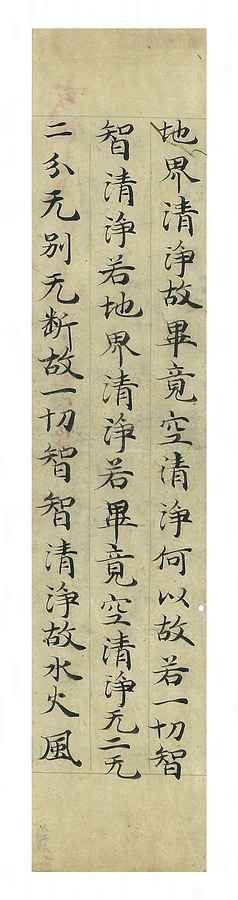 地界清淨故畢竟空清淨何以故若一切智
智清淨若地界清淨若畢竟空清淨无二无
二分无別无断故一切智智清淨故水火風